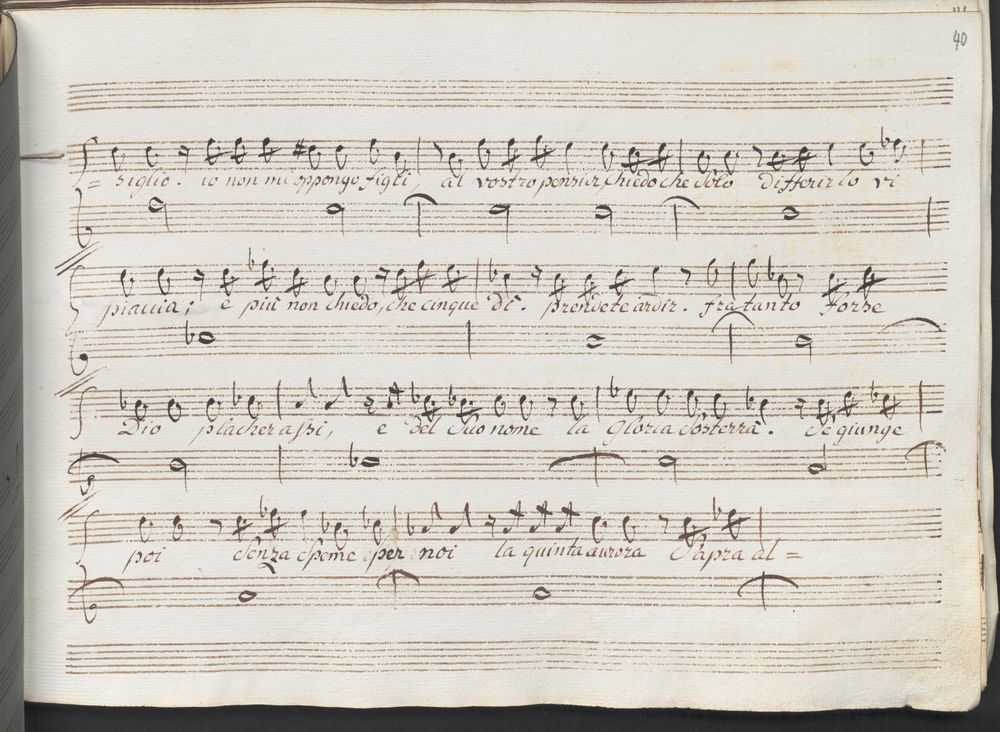 40
= siglio. io non mi oppongo figli, al vostro pensier, chiedo che solo differirlo vi
piaccia; e più non chiedo, che cinque dì. prendete ardir. fra tanto forse
Dio placherassi, e del suo nome la gloria sosterrà. Se giunge
poi senza speme per noi la quinta aurora s'apra al =